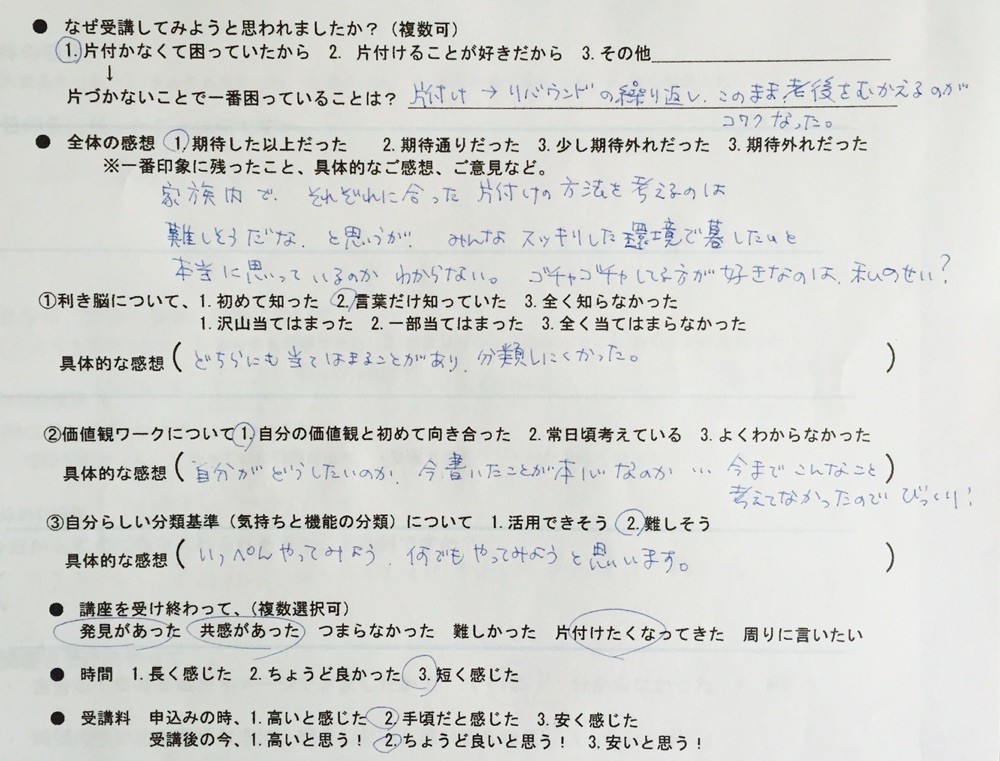 ● なぜ受講してみようと思われましたか？（複数可）
1. 片付かなくて困っていたから 2. 片付けることが好きだから 3. その他
↓
片づかないことで一番困っていることは？ 片付け → リバウンドの繰り返し、このまま老後をむかえるのが
コワクなった。
● 全体の感想 1. 期待した以上だった 2. 期待通りだった 3. 少し期待外れだった 3. 期待外れだった
※一番印象に残ったこと、具体的なご感想、ご意見など。
家族内で、それぞれに合った片付けの方法を考えるのは
難しそうだな、と思うが、みんなスッキリした環境で暮したいと
本当に思っているのかわからない。ゴチャゴチャしてる方が好きなのは、私のせい？
①利き脳について、1. 初めて知った 2. 言葉だけ知っていた 3. 全く知らなかった
1. 沢山当てはまった 2. 一部当てはまった 3. 全く当てはまらなかった
具体的な感想（どちらにも当てはまることがあり、分類しにくかった。）
②価値観ワークについて 1. 自分の価値観と初めて向き合った 2. 常日頃考えている 3. よくわからなかった
具体的な感想（自分がどうしたいのか、今書いたことが本心なのか… 今までこんなこと）
考えてなかったのでびっくり！
③自分らしい分類基準（気持ちと機能の分類）について 1. 活用できそう 2. 難しそう
具体的な感想（いっぺんやってみよう、何でもやってみようと思います。）
● 講座を受け終わって、（複数選択可）
発見があった 共感があった つまらなかった 難しかった 片付けたくなってきた 周りに言いたい
● 時間 1. 長く感じた 2. ちょうど良かった 3. 短く感じた
● 受講料 申込みの時、1. 高いと感じた 2. 手頃だと感じた 3. 安く感じた
受講後の今、1. 高いと思う！ 2. ちょうど良いと思う！ 3. 安いと思う！